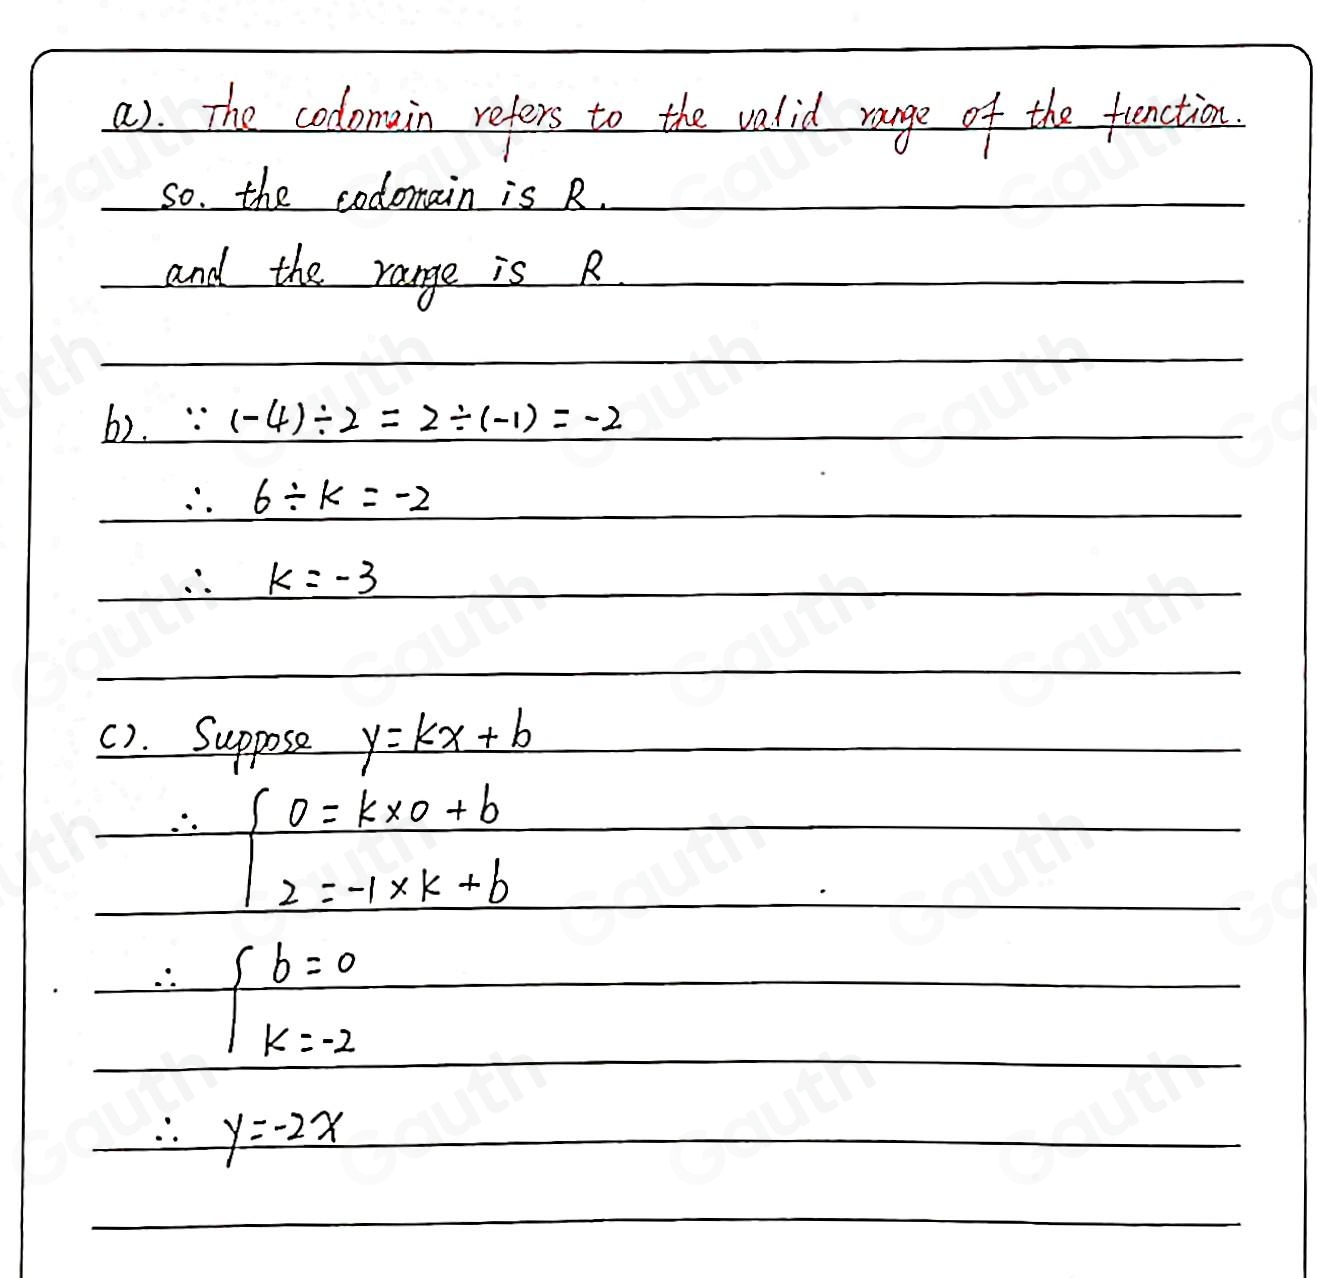 a). The codomain refers to the valid range of the function.
so. the codomain is R.
and the range is R.
b). ∵ (-4)÷2 = 2÷(-1) = -2
∴ 6÷k = -2
∴ k = -3
c). Suppose y = kx + b
∴ { 0 = k×0 + b
2 = -1×k + b
∴ { b = 0
k = -2
∴ y = -2x
Gauth